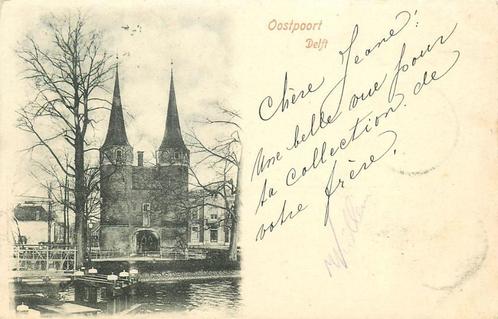 Oostpoort
Delft
Chère Jeane!
Une belle vue pour
ta collection. de
votre frère.